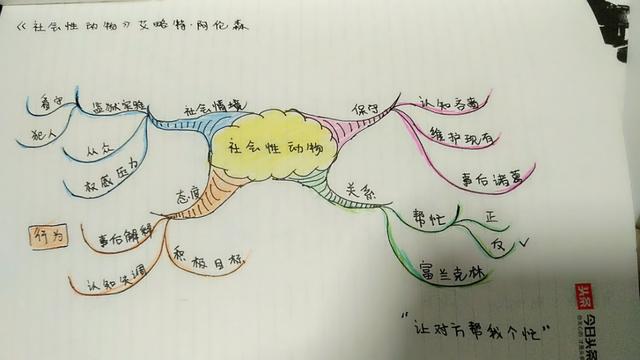 《社会性动物》艾略特·阿伦森
社会性动物
社会情境
监狱实验
看守
犯人
从众
权威压力
保守
认知吝啬
维护现有
事后诸葛
态度
事后解释
行为
认知失调
积极目标
关系
帮忙
正
反 ✓
富兰克林
"让对方帮我个忙"
头条
今日头条